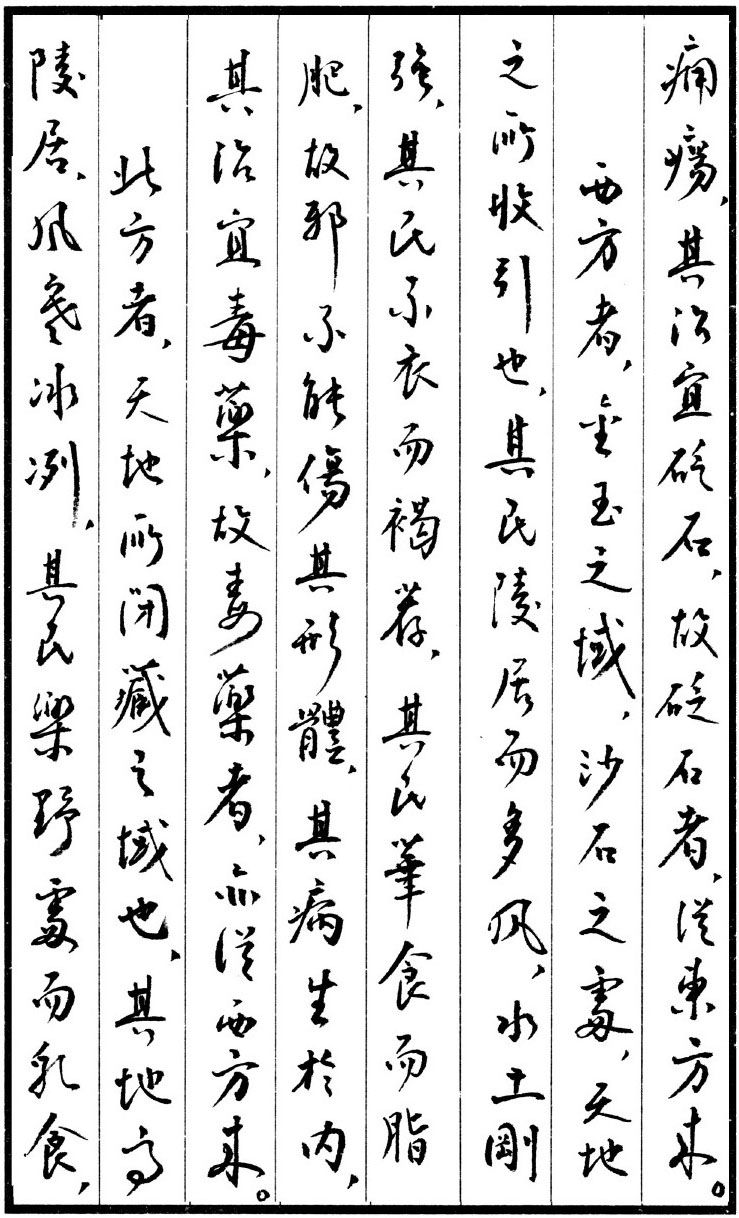 痈瘍，其治宜砭石，故砭石者，從東方来。
西方者，金玉之域，沙石之處，天地
之所收引也，其民陵居而多風，水土剛
强，其民不衣而褐荐，其民華食而脂
肥，故邪不能傷其形體，其病生於内，
其治宜毒藥，故毒藥者，亦從西方来。
北方者，天地所闭藏之域也，其地高
陵居，风寒冰冽，其民樂野處而乳食，